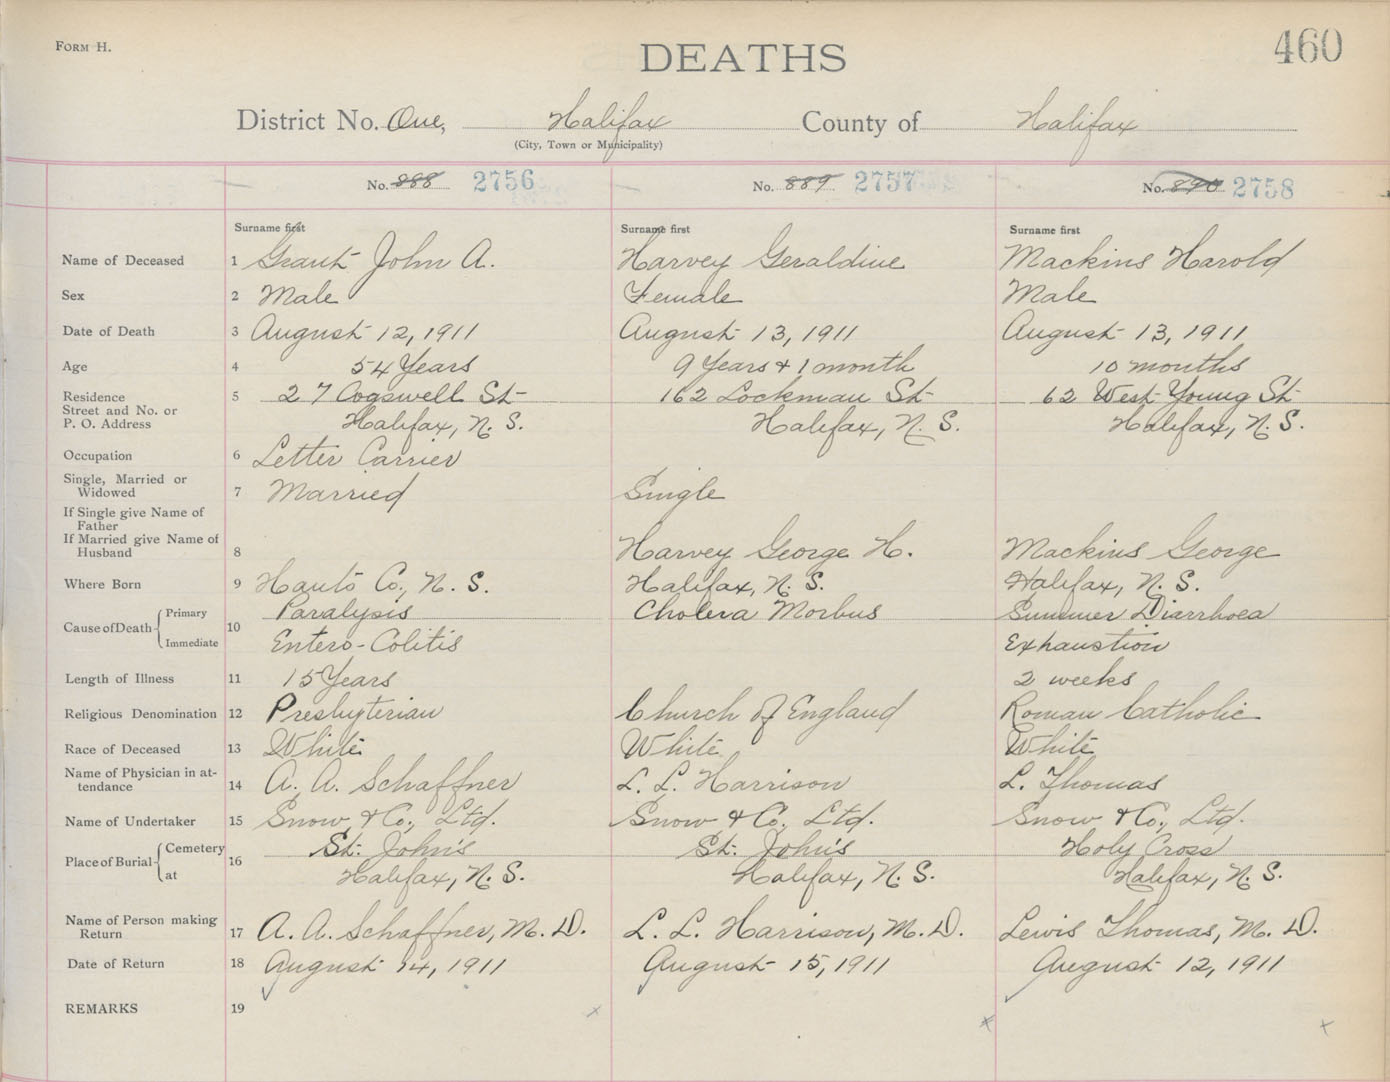 FORM H.
DEATHS
460
District No. One, Halifax County of Halifax
(City, Town or Municipality)
No. 888 2756 No. 889 2757 No. 890 2758
Surname first Surname first Surname first
Name of Deceased 1 Grant John A. Harvey Geraldine Mackins Harold
Sex 2 Male Female Male
Date of Death 3 August 12, 1911 August 13, 1911 August 13, 1911
Age 4 54 Years 9 Years + 1 month 10 months
Residence 5 27 Cogswell St 162 Lockman St 62 West Young St
Street and No. or
P. O. Address Halifax, N. S. Halifax, N. S. Halifax, N. S.
Occupation 6 Letter Carrier
Single, Married or
Widowed 7 Married Single
If Single give Name of
Father
If Married give Name of
Husband 8 Harvey George H. Mackins George
Where Born 9 Hants Co., N. S. Halifax, N. S. Halifax, N. S.
Cause of Death 10 Primary Paralysis Cholera Morbus Summer Diarrhoea
Immediate Entero-Colitis Exhaustion
Length of Illness 11 15 Years 2 weeks
Religious Denomination 12 Presbyterian Church of England Roman Catholic
Race of Deceased 13 White White White
Name of Physician in at-
tendance 14 A. A. Schaffner L. L. Harrison L. Thomas
Name of Undertaker 15 Snow & Co., Ltd. Snow & Co., Ltd. Snow & Co., Ltd.
Place of Burial 16 Cemetery St. John's St. John's Holy Cross
at Halifax, N. S. Halifax, N. S. Halifax, N. S.
Name of Person making
Return 17 A. A. Schaffner, M. D. L. L. Harrison, M. D. Lewis Thomas, M. D.
Date of Return 18 August 14, 1911 August 15, 1911 August 12, 1911
REMARKS 19